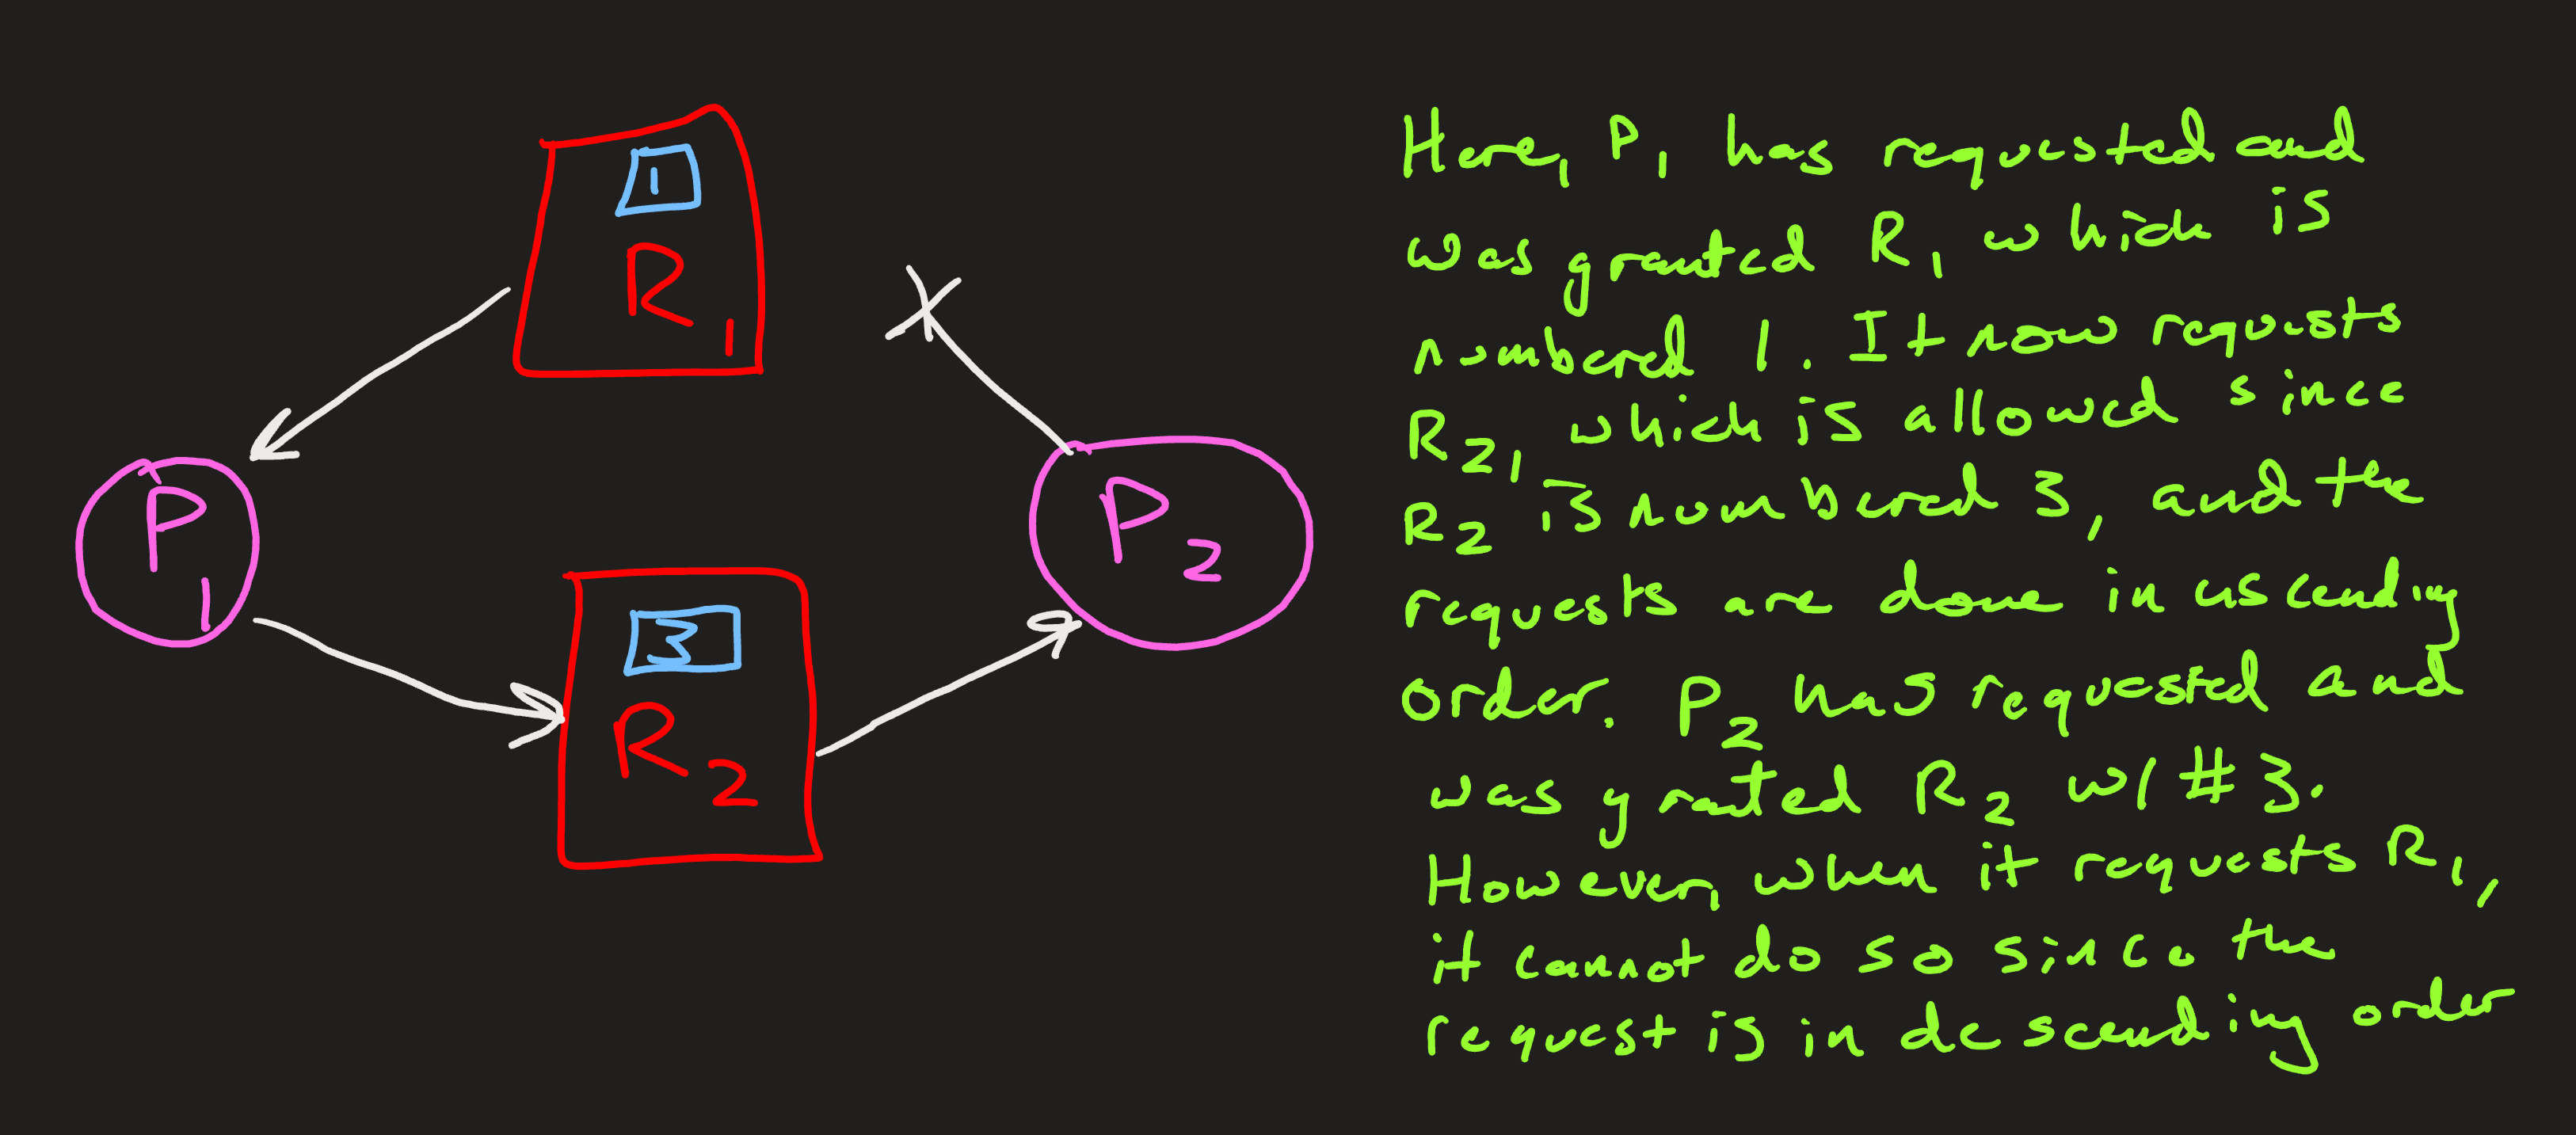 1
R1
P1
3
R2
P2
Here, P1 has requested and
was granted R1 which is
numbered 1. It now requests
R2, which is allowed since
R2 is numbered 3, and the
requests are done in ascending
order. P2 has requested and
was granted R2 w/ #3.
However, when it requests R1,
it cannot do so since the
request is in descending order